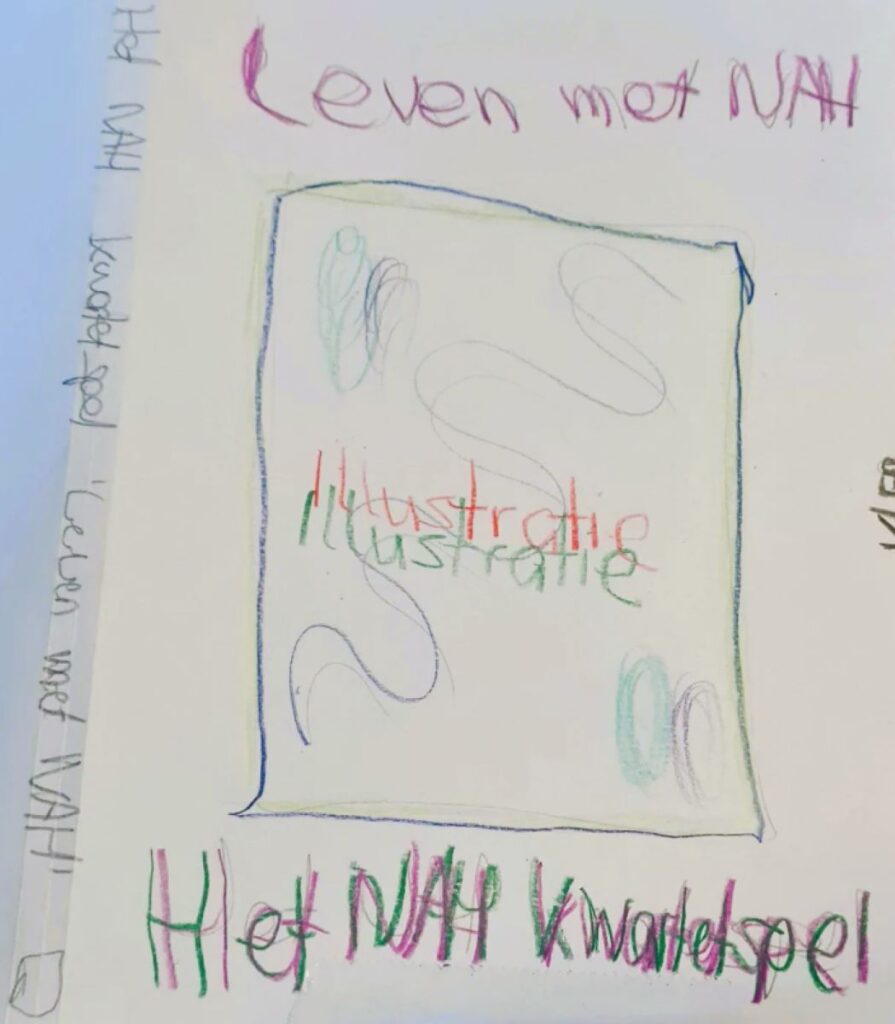 Leven met NAH
Illustratie
Illustratie
Het NAH kwartetspel
Het NAH kwartetspel 'Leven met NAH'